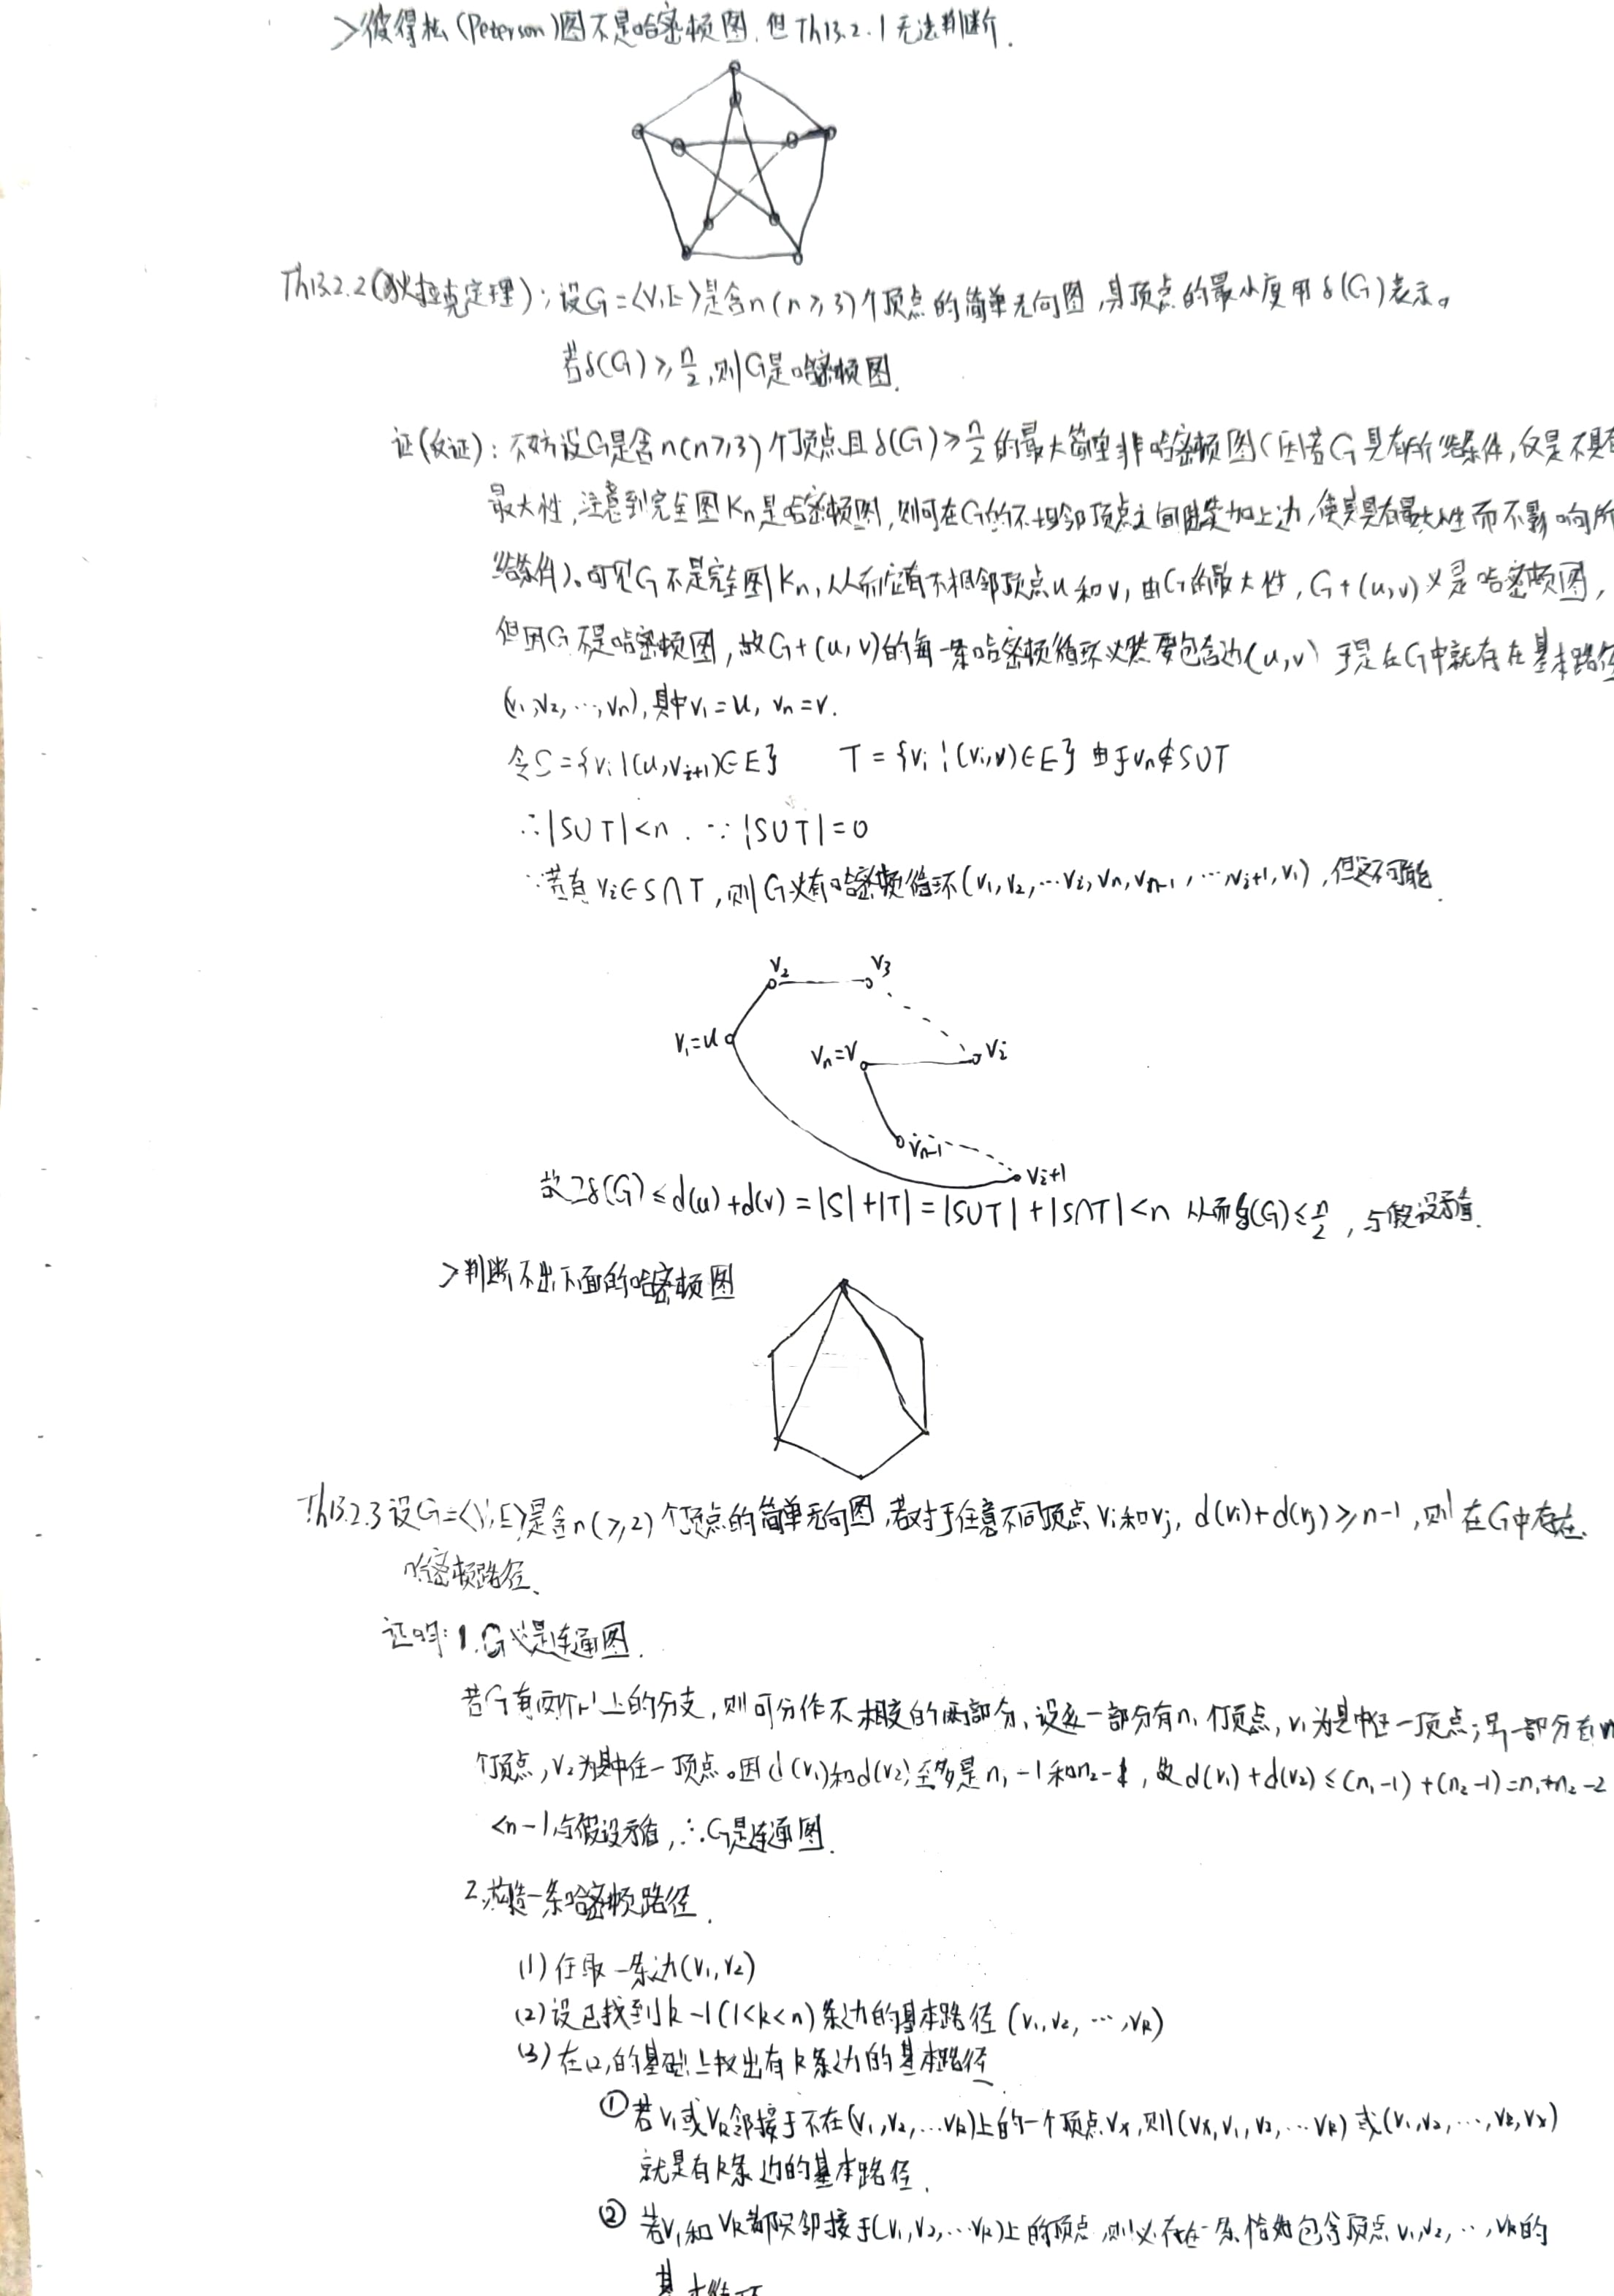 >彼得松(Peterson)图不是哈密顿图,但Th13.2.1无法判断.
Th13.2.2(狄拉克定理):设G=<V,E>是含n(n≥3)个顶点的简单无向图,其顶点的最小度用δ(G)表示。
若δ(G)≥n/2,则G是哈密顿图.
证(反证):不妨设G是含n(n≥3)个顶点且δ(G)≥n/2的最大简单非哈密顿图(因若G具有所给条件,仅是不具有
最大性,注意到完全图Kn是哈密顿图,则可在G的不相邻顶点之间加上边,使其具有最大性而不影响所
给条件)。可见G不是完全图Kn,从而应有不相邻顶点u和v,由G的最大性,G+(u,v)必是哈密顿图,
但因G不是哈密顿图,故G+(u,v)的每一条哈密顿循环必然要包含边(u,v) 于是在G中就存在基本路径
(v1,v2,…,vn),其中v1=u, vn=v.
令S={vi|(u,vi+1)∈E} T={vi|(vi,v)∈E} 由于vn∉S∪T
∴|S∪T|<n. ∵|S∪T|=0
∵若有vi∈S∩T,则G必有哈密顿循环(v1,v2,…vi,vn,vn-1,…,vi+1,v1),但这不可能.
v2
v3
v1=u
vn=v
vi
vn-1
vi+1
故2δ(G)≤d(u)+d(v)=|S|+|T|=|S∪T|+|S∩T|<n 从而δ(G)≤n/2,与假设矛盾.
>判断不出下面的哈密顿图
Th13.2.3 设G=<V,E>是含n(≥2)个顶点的简单无向图,若对于任意不同顶点vi和vj, d(vi)+d(vj)≥n-1,则在G中存在
哈密顿路径.
证明: 1.G必是连通图.
若G有两个以上的分支,则可分作不相交的两部分,设这一部分有n1个顶点,v1为其中任一顶点;另一部分有n
个顶点,v2为其中任一顶点。因d(v1)和d(v2)至多是n1-1和n2-1,故d(v1)+d(v2)≤(n1-1)+(n2-1)=n1+n2-2
<n-1,与假设矛盾,∴G是连通图.
2.构造一条哈密顿路径.
(1)任取一条边(v1,v2)
(2)设已找到k-1(1<k<n)条边的基本路径(v1,v2,…,vk)
(3)在(2)的基础上找出有k条边的基本路径
①若v1或vk邻接于不在(v1,v2,…vk)上的一个顶点vx,则(vx,v1,v2,…vk)或(v1,v2,…,vk,vx)
就是有k条边的基本路径.
②若v1和vk都只邻接于(v1,v2,…vk)上的顶点,则必存在一条恰好包含顶点v1,v2,…,vk的
基本循环